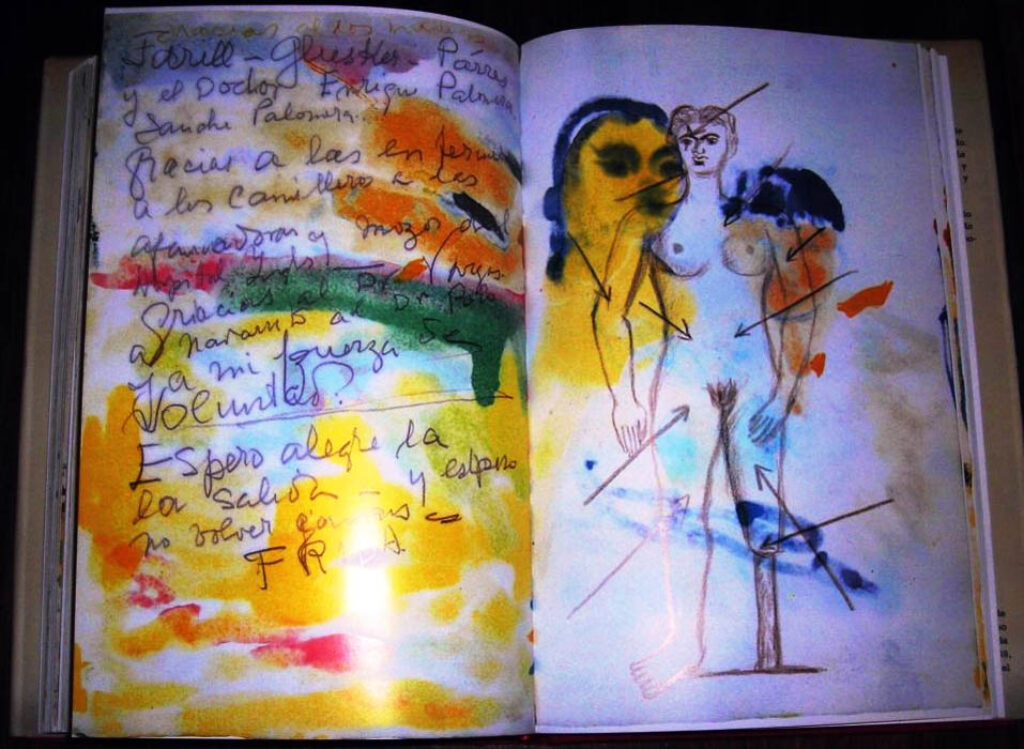 Gracias a los
Farill - Glusker - Párres
y el Doctor Enrique Palomera
Sanche Palomera
Gracias a las enfermeras
a los Camilleros a las
afanadoras y mozos del
Hospital Inglés
Gracias al Dr.
a Navarro al Dr. Polo
y a mi fuerza de
Voluntad.
Espero alegre la
la salida - y espero
no volver jamás
FRIDA